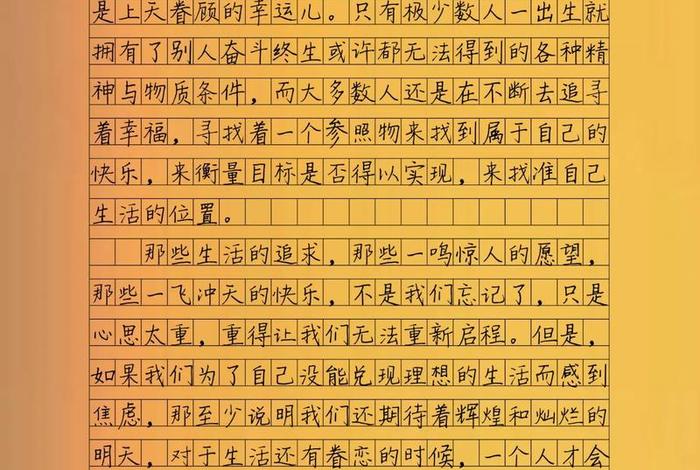 是上天眷顾的幸运儿。只有极少数人一出生就
拥有了别人奋斗终生或许都无法得到的各种精
神与物质条件，而大多数人还是在不断去追寻
着幸福，寻找着一个参照物来找到属于自己的
快乐，来衡量目标是否得以实现，来找准自己
生活的位置。
那些生活的追求，那些一鸣惊人的愿望，
那些一飞冲天的快乐，不是我们忘记了，只是
心思太重，重得让我们无法重新启程。但是，
如果我们为了自己没能兑现理想的生活而感到
焦虑，那至少说明我们还期待着辉煌和灿烂的
明天，对于生活还有眷恋的时候，一个人才会